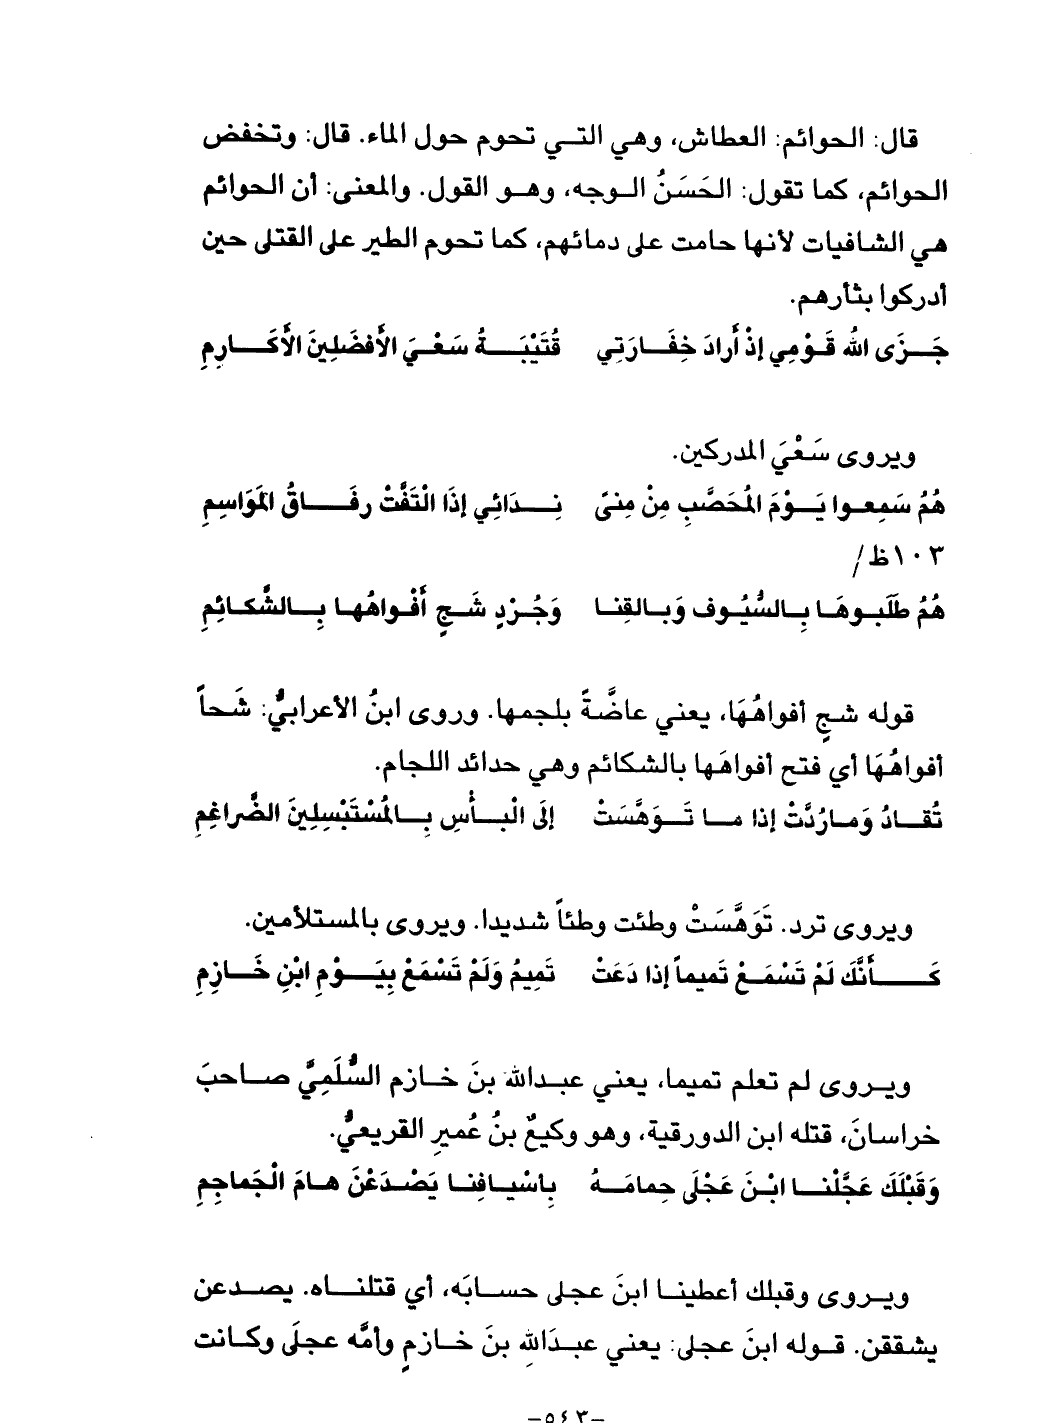 قال: الحوائم: العطاش، وهي التي تحوم حول الماء. قال: وتخفض
الحوائم، كما تقول: الحَسَنُ الوجه، وهو القول. والمعنى: أن الحوائم
هي الشافيات لأنها حامت على دمائهم، كما تحوم الطير على القتلى حين
أدركوا بثأرهم.
جَزَى اللهُ قَوْمِي إذْ أَرادَ خِفَارَتِي قُتَيْبَةُ سَعْيَ الأَفضَلِينَ الأَكَارِمِ
ويروى سَعْيَ المدركين.
هُمُ سَمِعوا يَوْمَ المُحَصَّبِ مِنْ مِنىً نِدَائِي إذَا الْتَفَّتْ رِفَاقُ المَوَاسِمِ
١٠٣ظ/
هُمُ طَلَبوهَا بِالسُّيُوف وَبالقِنا وَجُرْدٍ شَجٍ أَفْواهُها بِالشَّكائِمِ
قوله شجٍ أفواهُهَا، يعني عاضَّةً بلجمها. وروى ابنُ الأعرابيُّ: شَحاً
أفواهُهَا أي فتح أفواهَها بالشكائم وهي حدائد اللجام.
تُقادُ وَمارُدَّتْ إذا ما تَوَهَّسَتْ إلَى الْبأْسِ بِالمُسْتَبْسِلِينَ الضَّراغِمِ
ويروى ترد. تَوَهَّسَتْ وطئت وطئاً شديدا. ويروى بالمستلأمين.
كَأَنَّكَ لَمْ تَسْمَعْ تَميماً إذا دَعَتْ تَمِيمُ وَلَمْ تَسْمَعْ بِيَوْمِ ابْنِ خَازِمِ
ويروى لم تعلم تميما، يعني عبدالله بنَ خازم السُّلَمِيَّ صاحبَ
خراسانَ، قتله ابن الدورقية، وهو وكيعٌ بنُ عُميرِ القريعيُّ.
وَقَبْلَكَ عَجَّلْنا ابْنَ عَجْلَى حِمامَهُ بِاسْيافِنا يَصْدَعْنَ هامَ الْجَماجِمِ
ويروى وقبلك أعطينا ابنَ عجلى حسابَه، أي قتلناه. يصدعن
يشققن. قوله ابنَ عجلى: يعني عبدَاللهِ بنَ خازمٍ وأمَّه عجلَى وكانت
–٥٤٣–